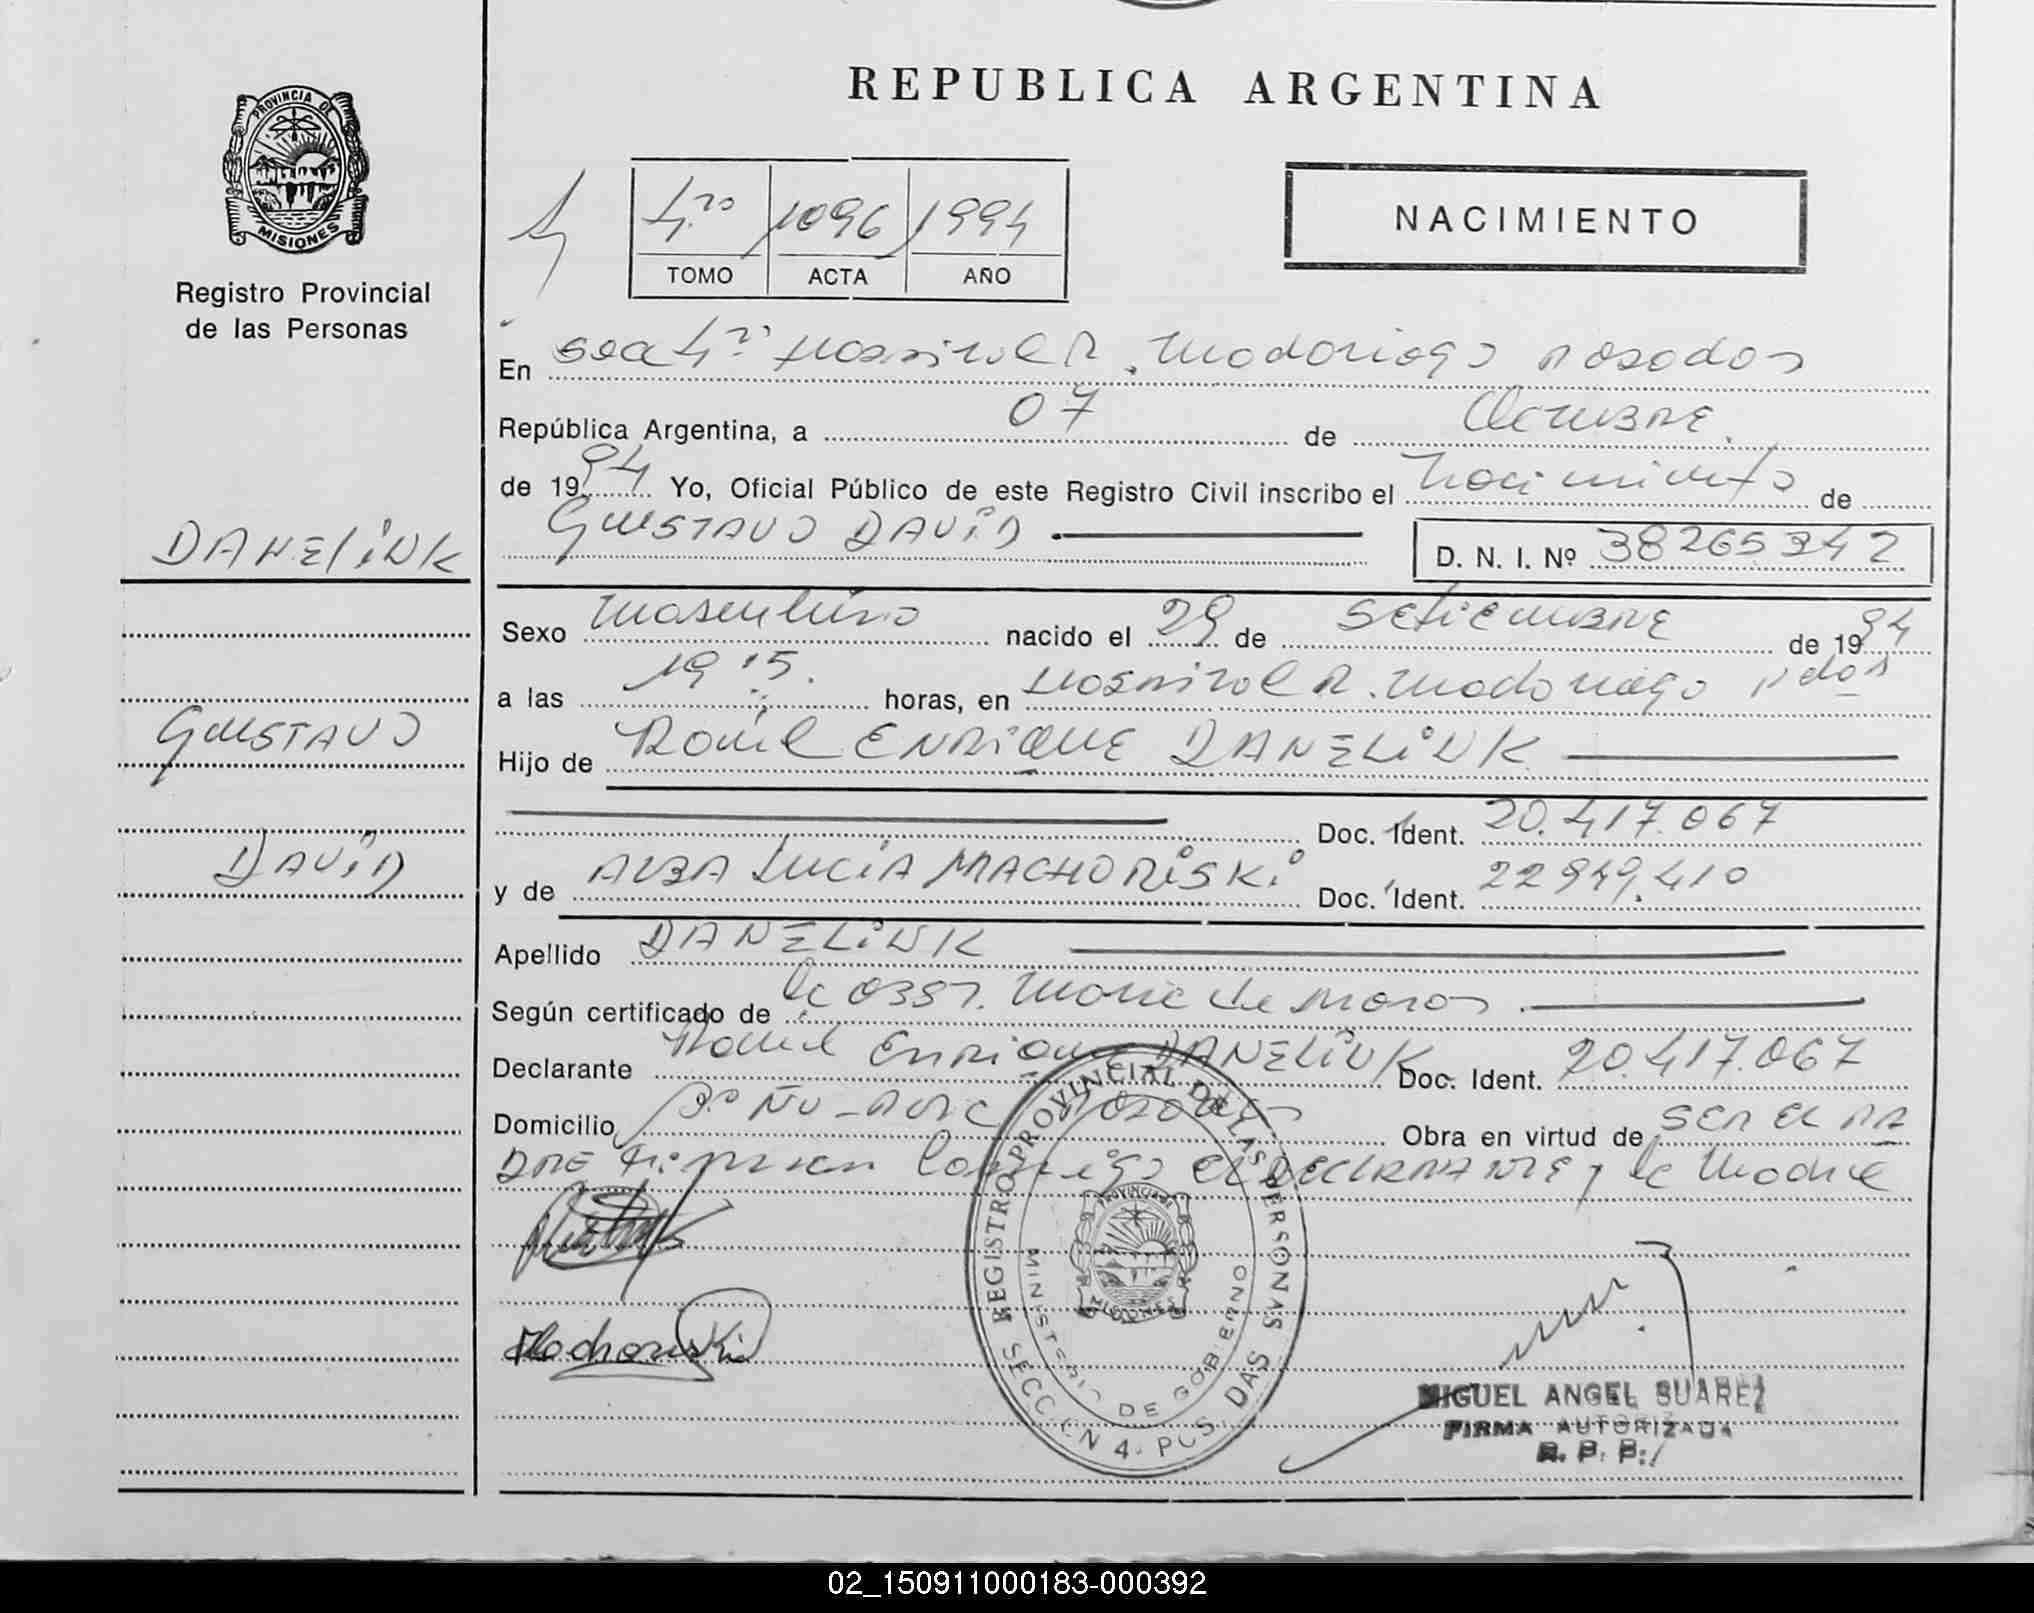 REPUBLICA ARGENTINA
PROVINCIA DE
MISIONES
Registro Provincial
de las Personas
4to 1096 1994
TOMO ACTA AÑO
NACIMIENTO
En Secc 4ta Hospital R. Madariaga Posadas
República Argentina, a 07 de Octubre
de 1994 Yo, Oficial Público de este Registro Civil inscribo el nacimiento de
GUSTAVO DAVID D. N. I. Nº 38265342
DANELINK
Sexo masculino nacido el 29 de Setiembre de 1994
a las 19 15 horas, en Hospital R. Madariaga Pdas
GUSTAVO
Hijo de Raul ENRIQUE DANELINK
Doc. Ident. 20.417.067
DAVID
y de ALBA LUCIA MACHORISKI Doc. Ident. 22949.410
Apellido DANELINK
Según certificado de la Obst.
Declarante Raul Enrique DANELINK Doc. Ident. 20.417.067
Domicilio Posadas Obra en virtud de SER EL PA
DRE Firman conmigo el DECLARANTE y la Madre
REGISTRO PROVINCIAL DE LAS PERSONAS
MINISTERIO DE GOBIERNO
PROVINCIA DE
MISIONES
SECCION 4 POSADAS
MIGUEL ANGEL SUAREZ
FIRMA AUTORIZADA
R. P. P.
02_150911000183-000392